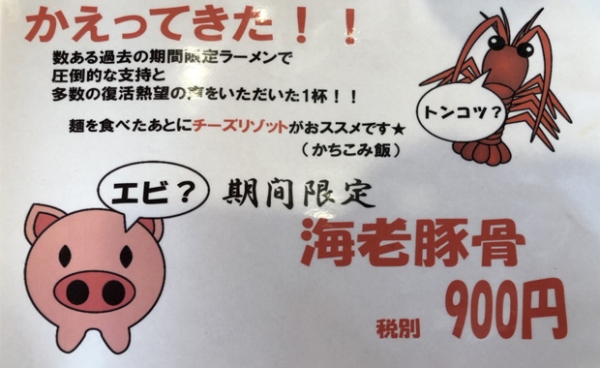 かえってきた！！
数ある過去の期間限定ラーメンで
圧倒的な支持と
多数の復活熱望の声をいただいた1杯！！
麺を食べたあとにチーズリゾットがおススメです★
（かちこみ飯）
トンコツ？
エビ？
期間限定
海老豚骨
税別 900円